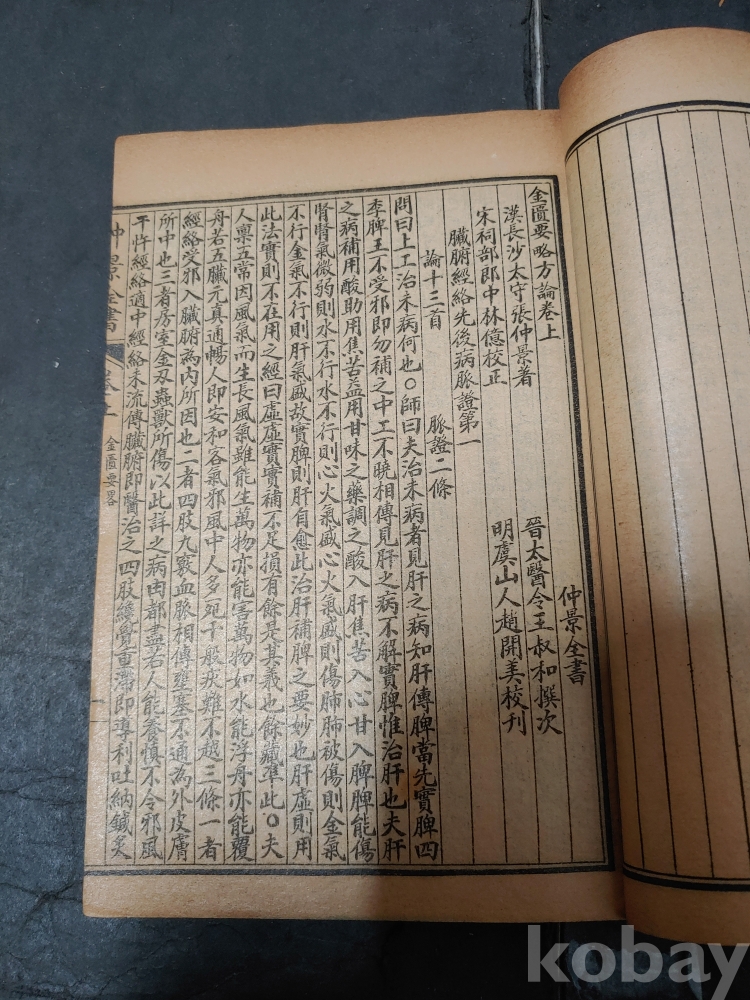 金匱要略方論卷上
仲景全書
漢長沙太守張仲景著
晉太醫令王叔和撰次
宋祠部郎中林億校正
明虞山人趙開美校刊
臟腑經絡先後病脈證第一
論十三首
脈證二條
問曰上工治未病何也○師曰夫治未病者見肝之病知肝傳脾當先實脾四
季脾王不受邪即勿補之中工不曉相傳見肝之病不解實脾惟治肝也夫肝
之病補用酸助用焦苦益用甘味之藥調之酸入肝焦苦入心甘入脾脾能傷
腎腎氣微弱則水不行水不行則心火氣盛心火氣盛則傷肺肺被傷則金氣
不行金氣不行則肝氣盛故實脾則肝自愈此治肝補脾之要妙也肝虛則用
此法實則不在用之經曰虛虛實實補不足損有餘是其義也餘藏準此○夫
人稟五常因風氣而生長風氣雖能生萬物亦能害萬物如水能浮舟亦能覆
舟若五臟元真通暢人即安和客氣邪風中人多死千般疢難不越三條一者
經絡受邪入臟腑為內所因也二者四肢九竅血脈相傳壅塞不通為外皮膚
所中也三者房室金刃蟲獸所傷以此詳之病由都盡若人能養慎不令邪風
干忤經絡適中經絡未流傳臟腑即醫治之四肢纔覺重滯即導利吐納鍼灸
仲景全書
金匱要畧
一
kobay